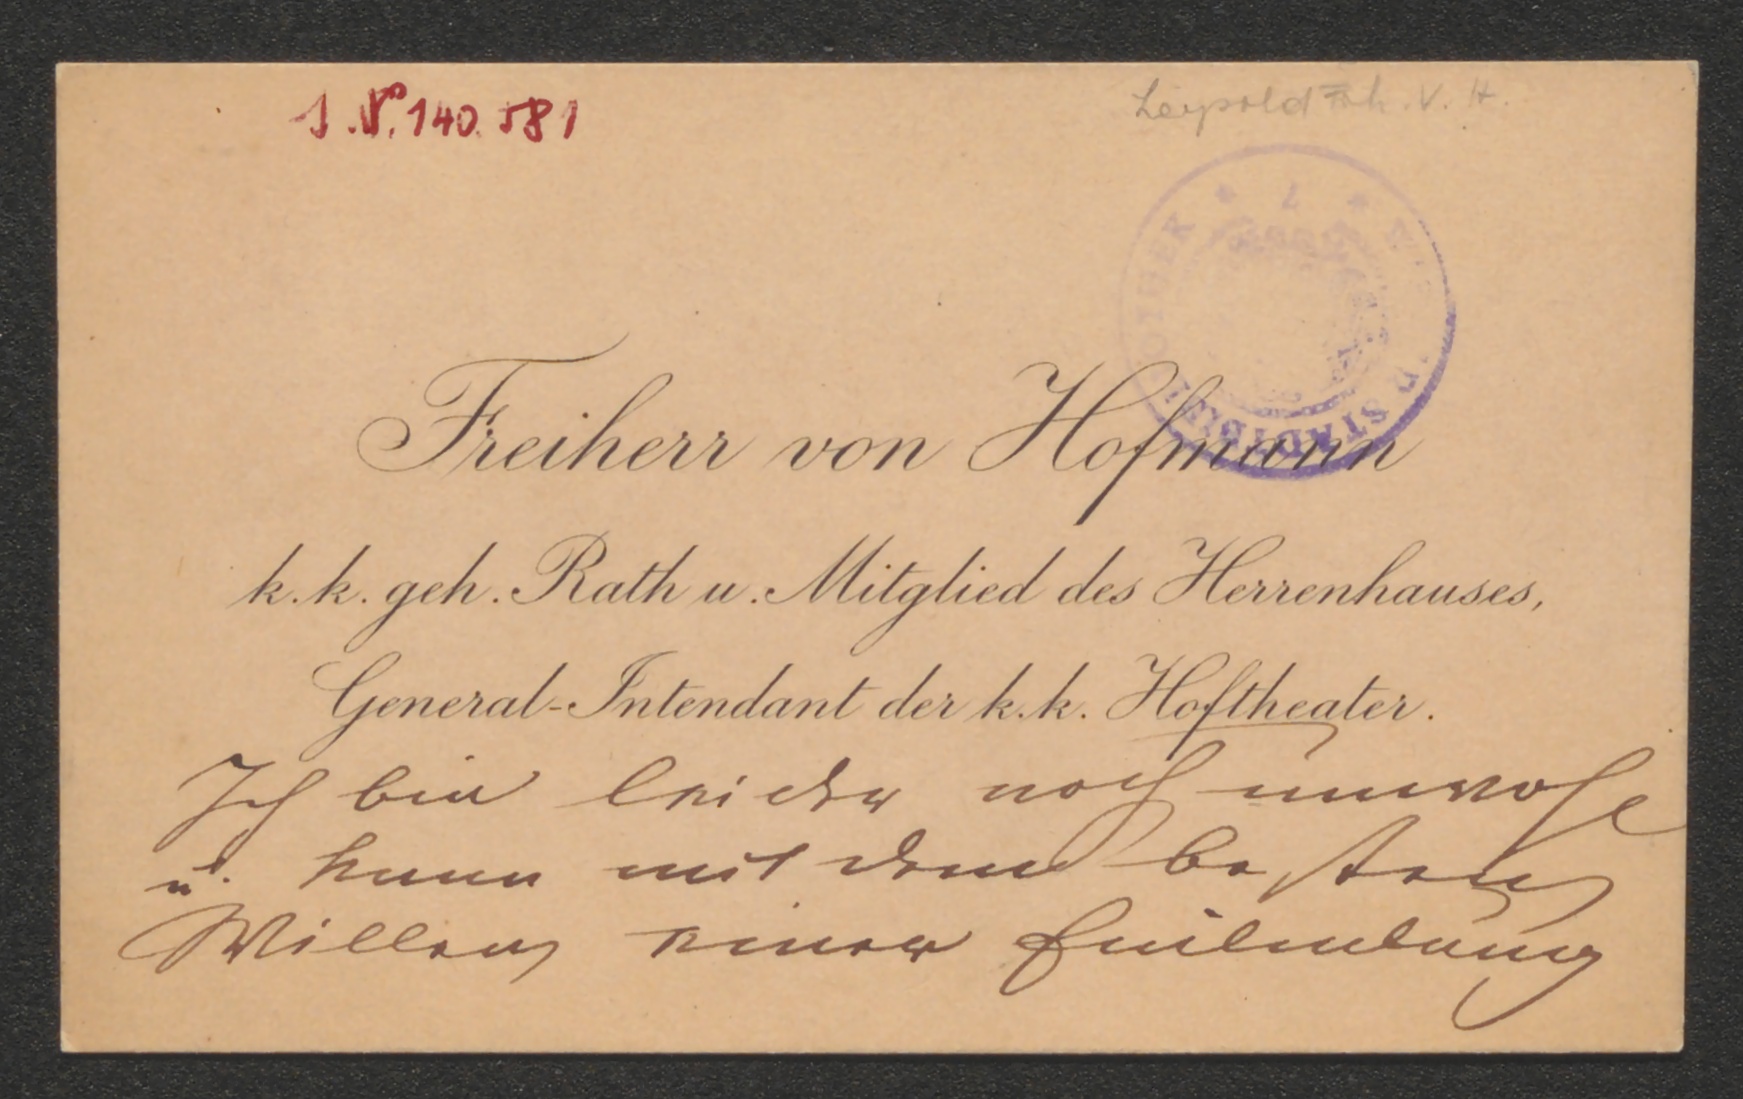 J.N. 140.581
Leopold Frh. v. H.
Freiherr von Hofmann
k. k. geh. Rath u. Mitglied des Herrenhauses,
General-Intendant der k. k. Hoftheater.
Ich bin leider noch unwohl
u. kann mit dem besten
Willen keiner Einladung